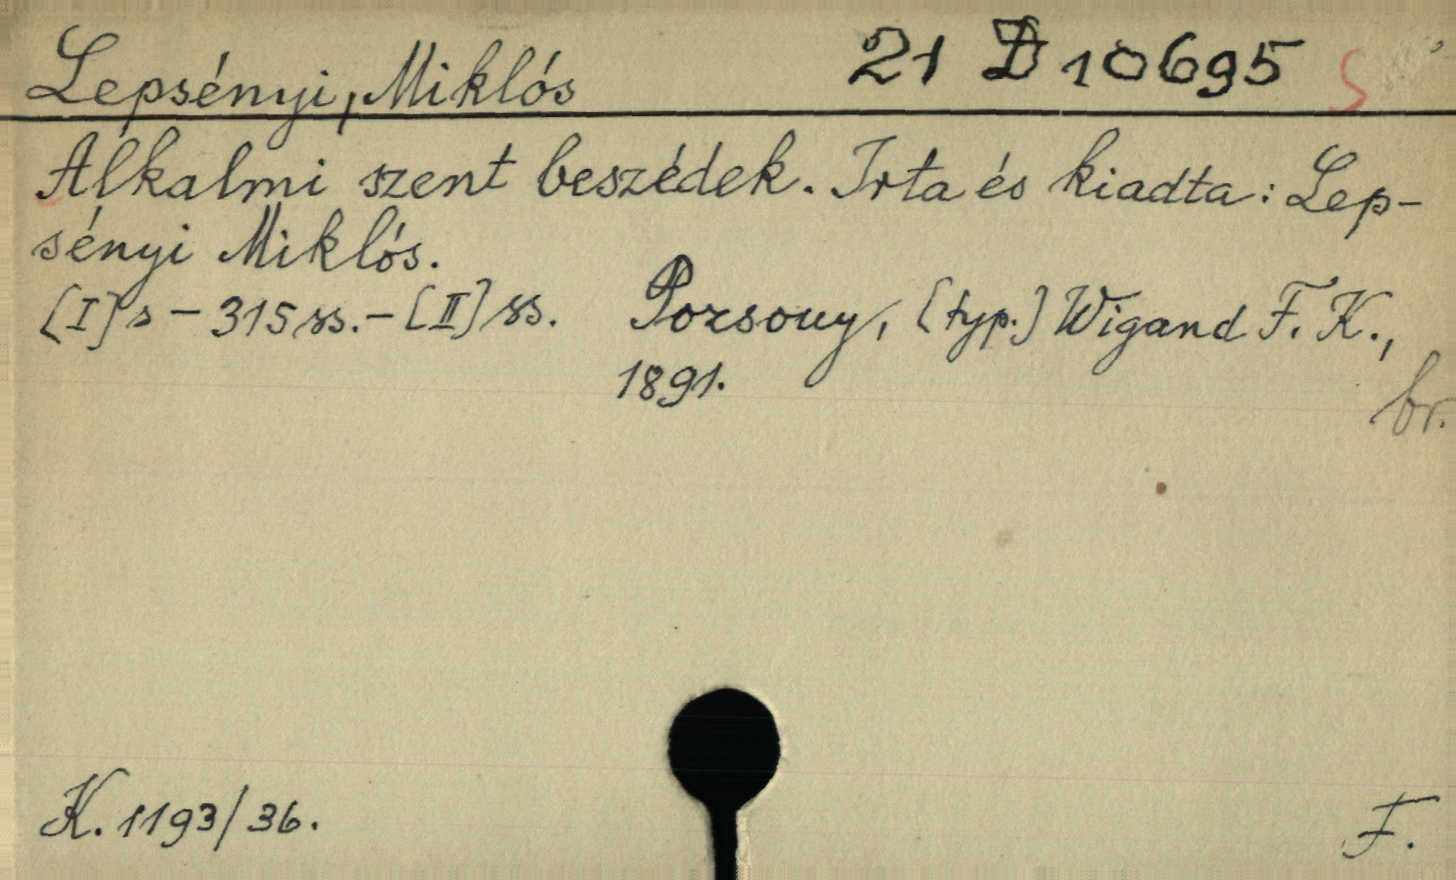 Lepsényi, Miklós 21 D 10695 S
Alkalmi szent beszédek. Irta és kiadta: Lep-
sényi Miklós.
[I] s - 315 ss. - [II] ss. Pozsony, [typ.] Wigand F. K.,
1891.
br.
K. 1193/36. F.